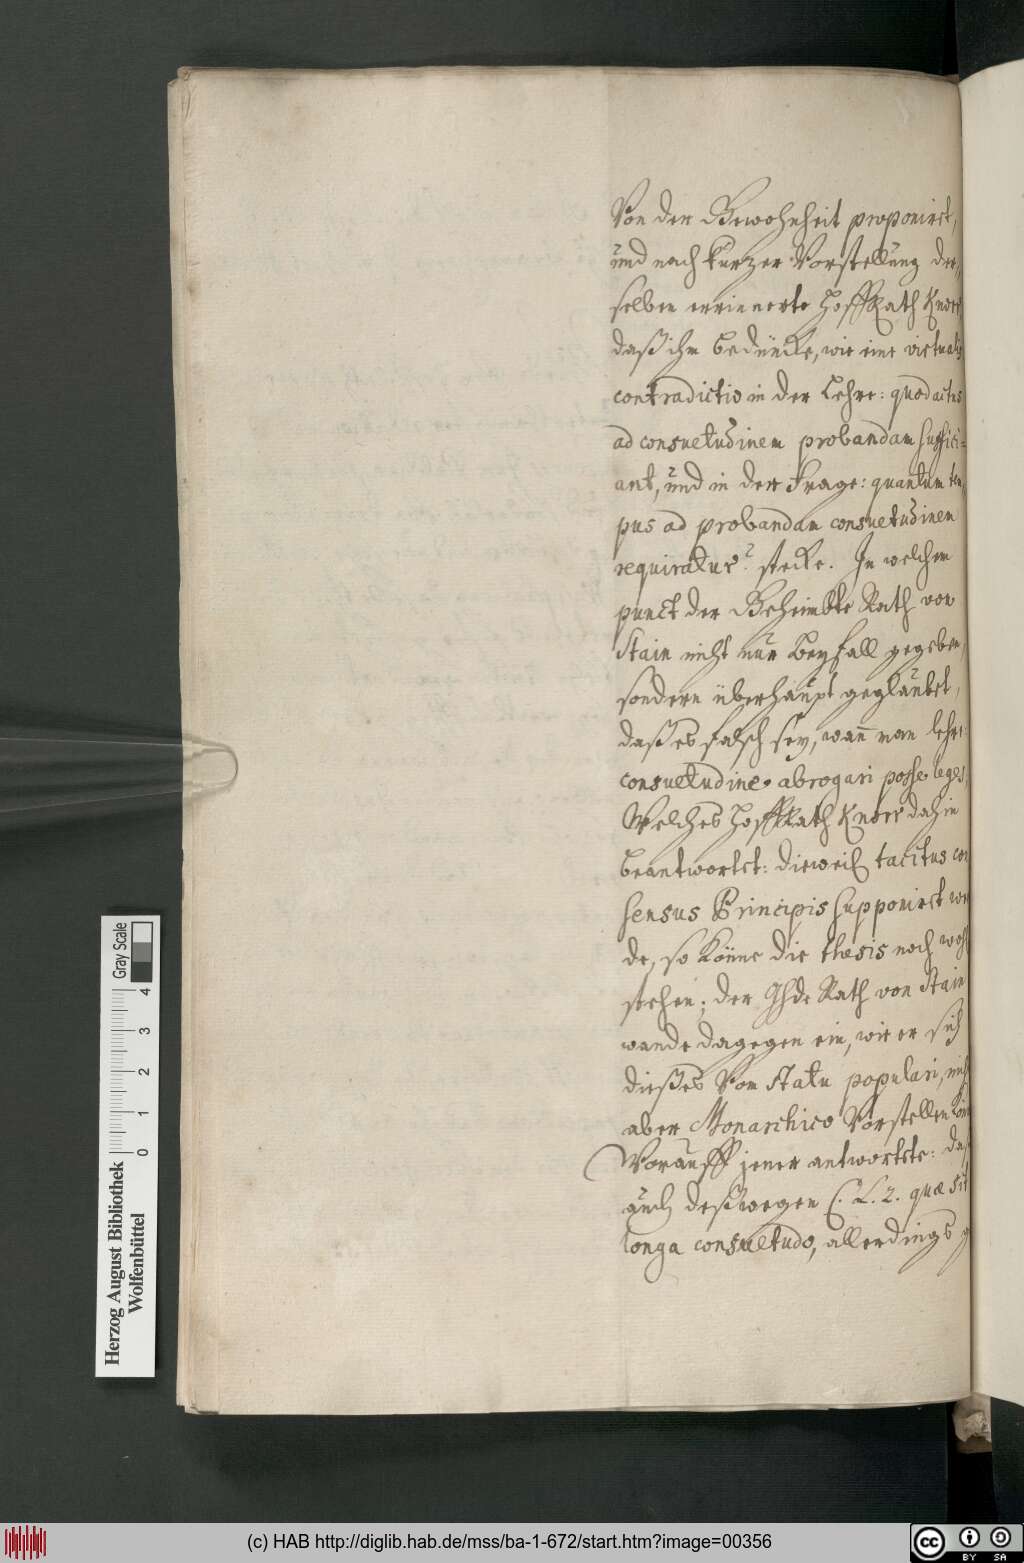 Von der Gewohnheit proponiret,
und nach kurzer Vorstellung der-
selben erinnerte HoffRath Knorr
daß ihm bedüncke, wie eine virtualis
contradictio in der Lehre: quod actus
ad consuetudinem probandam suffici-
ant, und in der Frage: quantum tem-
pus ad probandam consuetudinem
requiratur? stecke. In welchem
punct der Geheimbte Rath von
Stain nicht nur Beyfall gegeben,
sondern überhaupt geglaubet,
daß es falsch sey, wann man lehre:
consuetudine abrogari posse leges,
Welches HoffRath Knorr dahin
beantwortet: dieweil tacitus con
sensus Principis supponiret wer
de, so könne die thesis noch wohl
stehen; der Ghde Rath von Stain
wande dagegen ein, wie er sich
dießes Vom Statu populari, nicht
aber Monarchico Vorstellen kön
Worauff jener antwortete: daß
auch deßwegen C. L. 2. quæ sit
longa consuetudo, allerdings g
Herzog August Bibliothek
Wolfenbüttel
0 1 2 3 4
Gray Scale
(c) HAB http://diglib.hab.de/mss/ba-1-672/start.htm?image=00356
cc BY SA